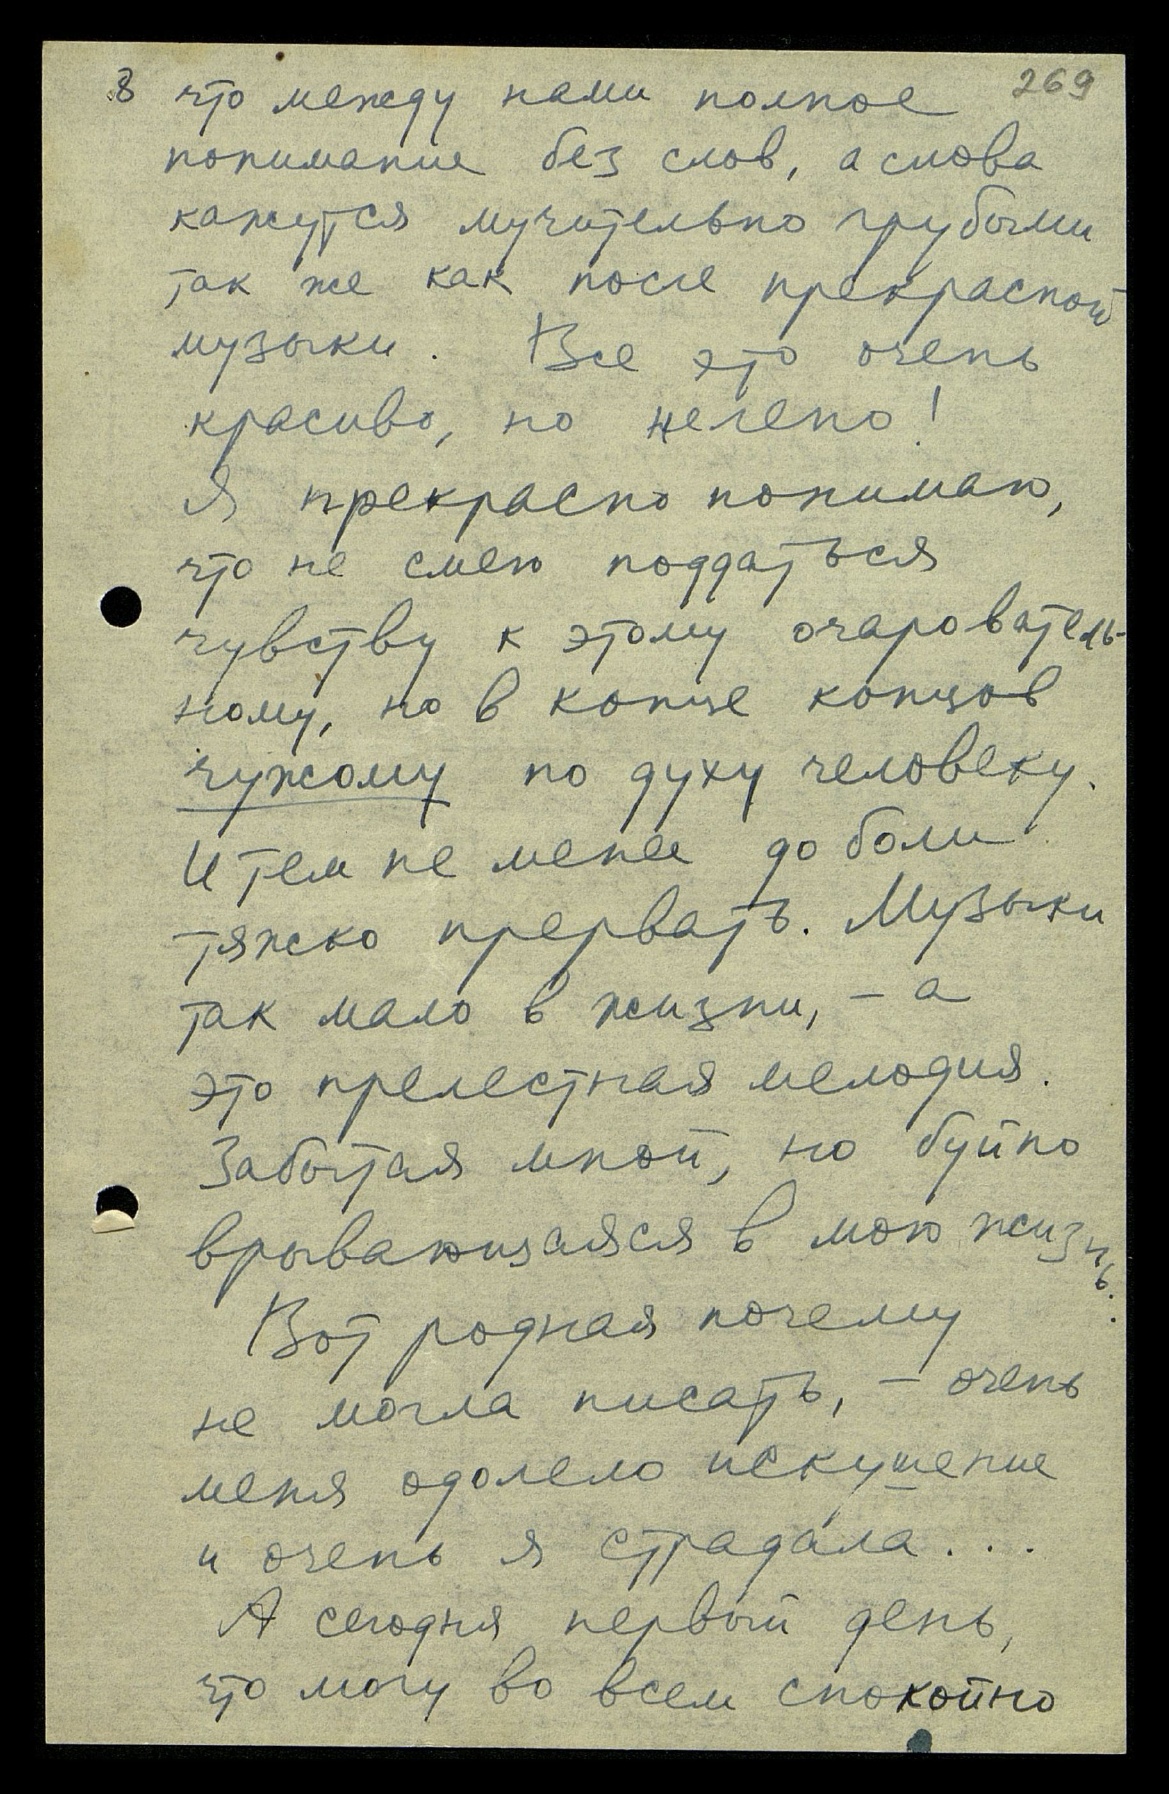 8 что между нами полное 269
понимание без слов, а слова
кажутся мучительно грубыми
так же как после прекрасной
музыки. Все это очень
красиво, но нелепо!
Я прекрасно понимаю,
что не смею поддаться
чувству к этому очарователь-
ному, но в конце концов
чужому по духу человеку.
И тем не менее до боли
тяжко прервать. Музыки
так мало в жизни, – а
это прелестная мелодия.
Забытая мной, но буйно
врывающаяся в мою жизнь.
Вот родная почему
не могла писать, – очень
меня одолело искушение
и очень я страдала...
А сегодня первый день,
что могу во всем спокойно